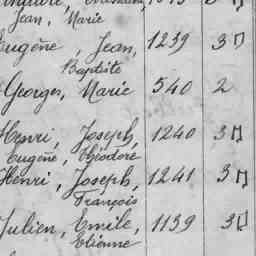 Jean, Marie
Eugène, Jean, 1239 3
Baptiste
Georges, Marie 540 2
Henri, Joseph, 1240 3
Eugène, Théodore
Henri, Joseph, 1241 3
François
Julien, Emile, 1139 3
Etienne